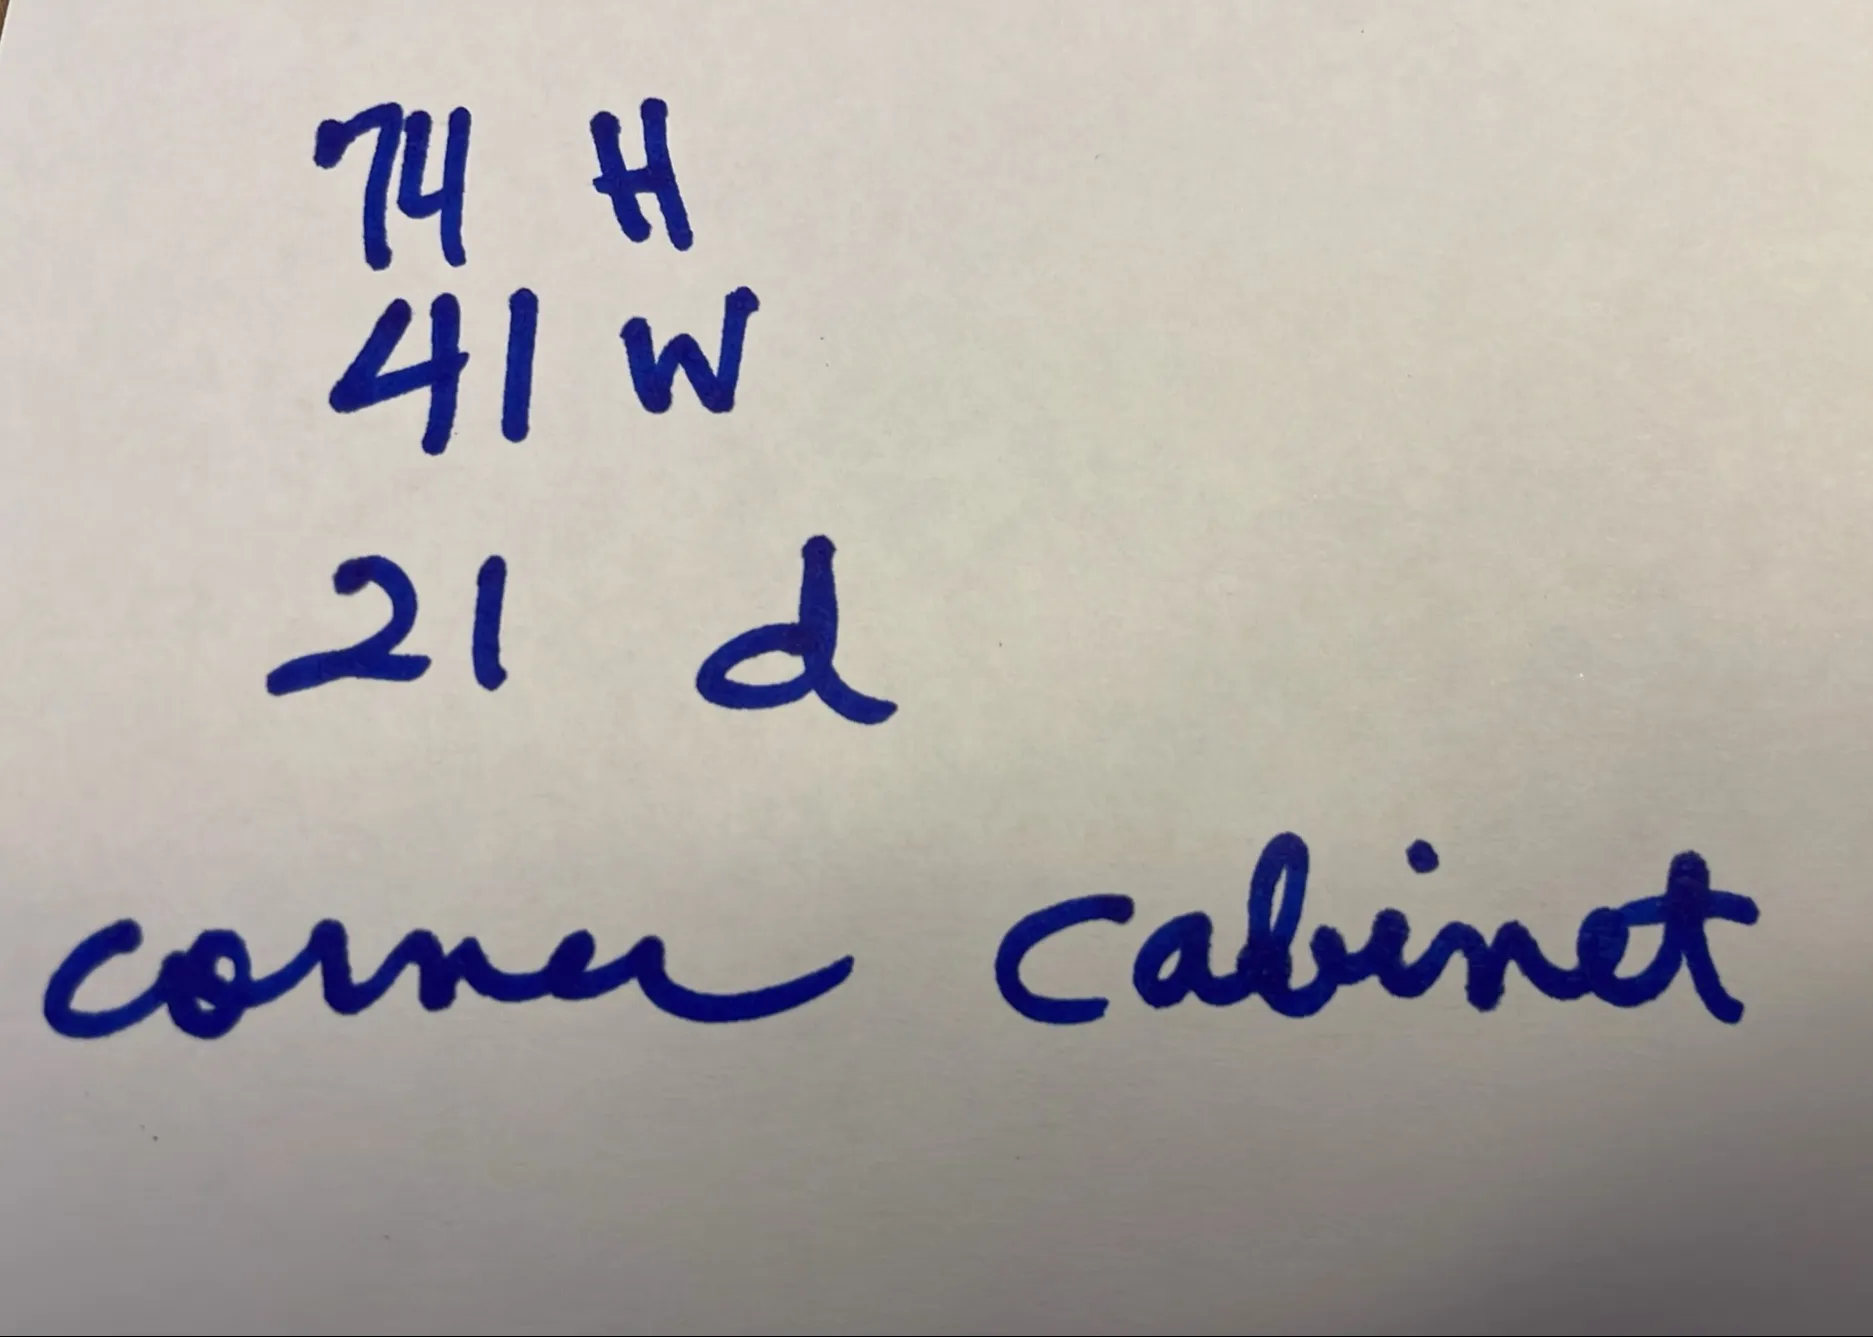 74 H
41 W
21 d
corner cabinet